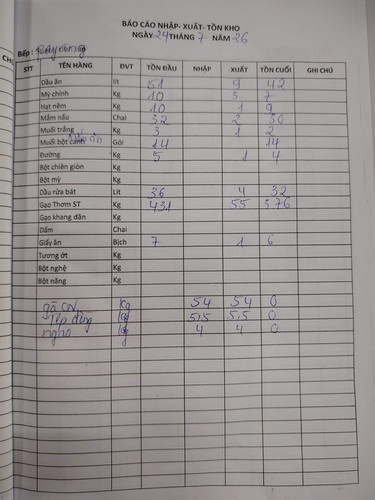 BÁO CÁO NHẬP- XUẤT- TỒN KHO
NGÀY 24 THÁNG 7 NĂM 26
Bếp :
STT TÊN HÀNG ĐVT TỒN ĐẦU NHẬP XUẤT TỒN CUỐI GHI CHÚ
Dầu ăn lít 51 9 42
Mỳ chính Kg 10 3 7
Hạt nêm Kg 10 1 9
Mắm nấu Chai 32 2 30
Muối trắng Kg 3 1 2
Muối bột canh Gói 14 14
Đường Kg 5 1 4
Bột chiên giòn Kg
Bột mỳ Kg
Dầu rửa bát Lít 36 4 32
Gạo Thơm ST Kg 431 55 376
Gạo khang dân Kg
Dấm Chai
Giấy ăn Bịch 7 1 6
Tương ớt Kg
Bột nghệ Kg
Bột năng Kg
gà CN kg 54 54 0
kg 5,5 5,5 0
kg 4 4 0